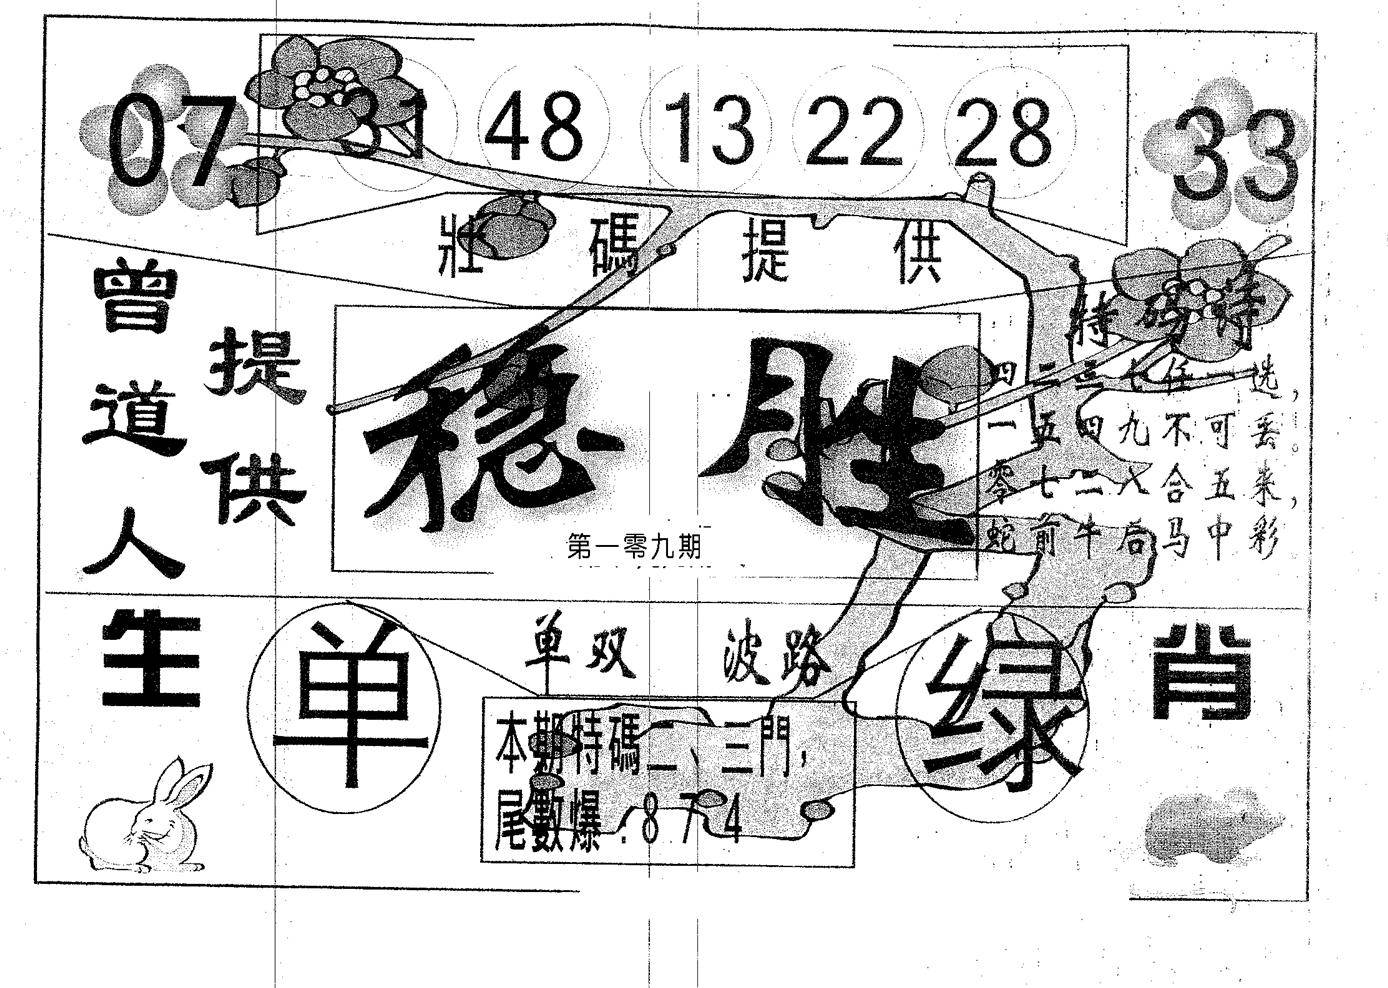 07 31 48 13 22 28 33
壯碼提供
曾道人
提供
稳胜
第一零九期
特码诗
四二三七任一选，
一五四九不可丢。
零七二八合五来，
蛇前牛后马中彩
生肖
单双 波路
单
绿
本期特碼二、三門，
尾數爆：874